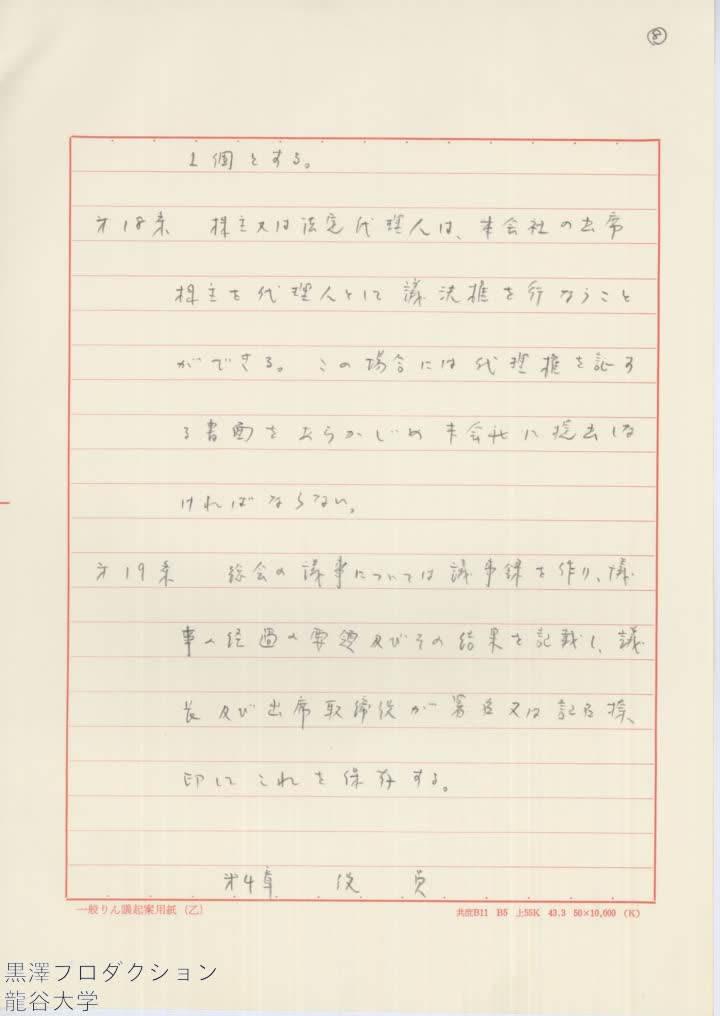 ⑧
1個とする。
才18条 株主又は法定代理人は、本会社の出席
株主を代理人として議決権を行なうこと
ができる。この場合には代理権を証す
る書面をあらかじめ本会社に提出しな
ければならない。
才19条 総会の議事については議事録を作り、議
事の経過の要領及びその結果を記載し、議
長及び出席取締役が署名又は記名捺
印してこれを保存する。
才4章 役員
一般りん議起案用紙(乙)
共度B11 B5 上55K 43.3 50×10,000 (K)
黒澤プロダクション
龍谷大学